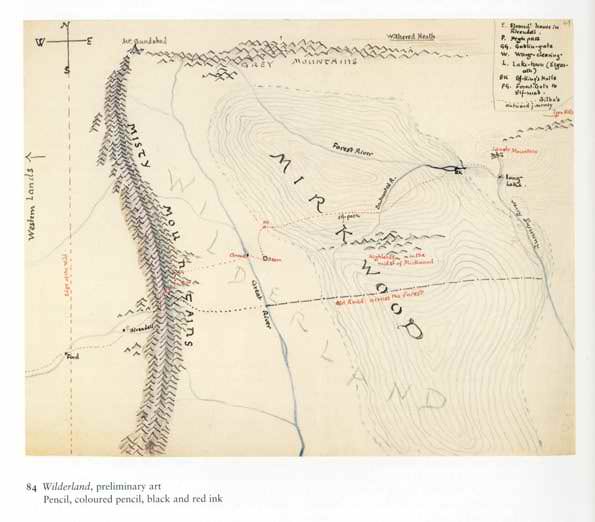 N
W E
S
Mt. Gundabad
GREY MOUNTAINS
Withered Heath
E. Elrond's house in
Rivendell
P. High pass
GG. Goblin-gate
W.
L. Lake-town (Esgaroth)
EK. Elf-King's Halls
FG. Forest Gate to
Elf-road.
Bilbo's
outward journey
Iron Hills
Lonely Mountain
Long
Lake
Running River
Forest River
Enchanted R.
MISTY MOUNTAINS
MIRKWOOD
WILDERLAND
Western Lands
Edge of the Wild
Elf-path
Carrock
Great
River
Highlands in the
midst of Mirkwood
Old Road across the Forest
Rivendell
Ford
84 Wilderland, preliminary art
Pencil, coloured pencil, black and red ink